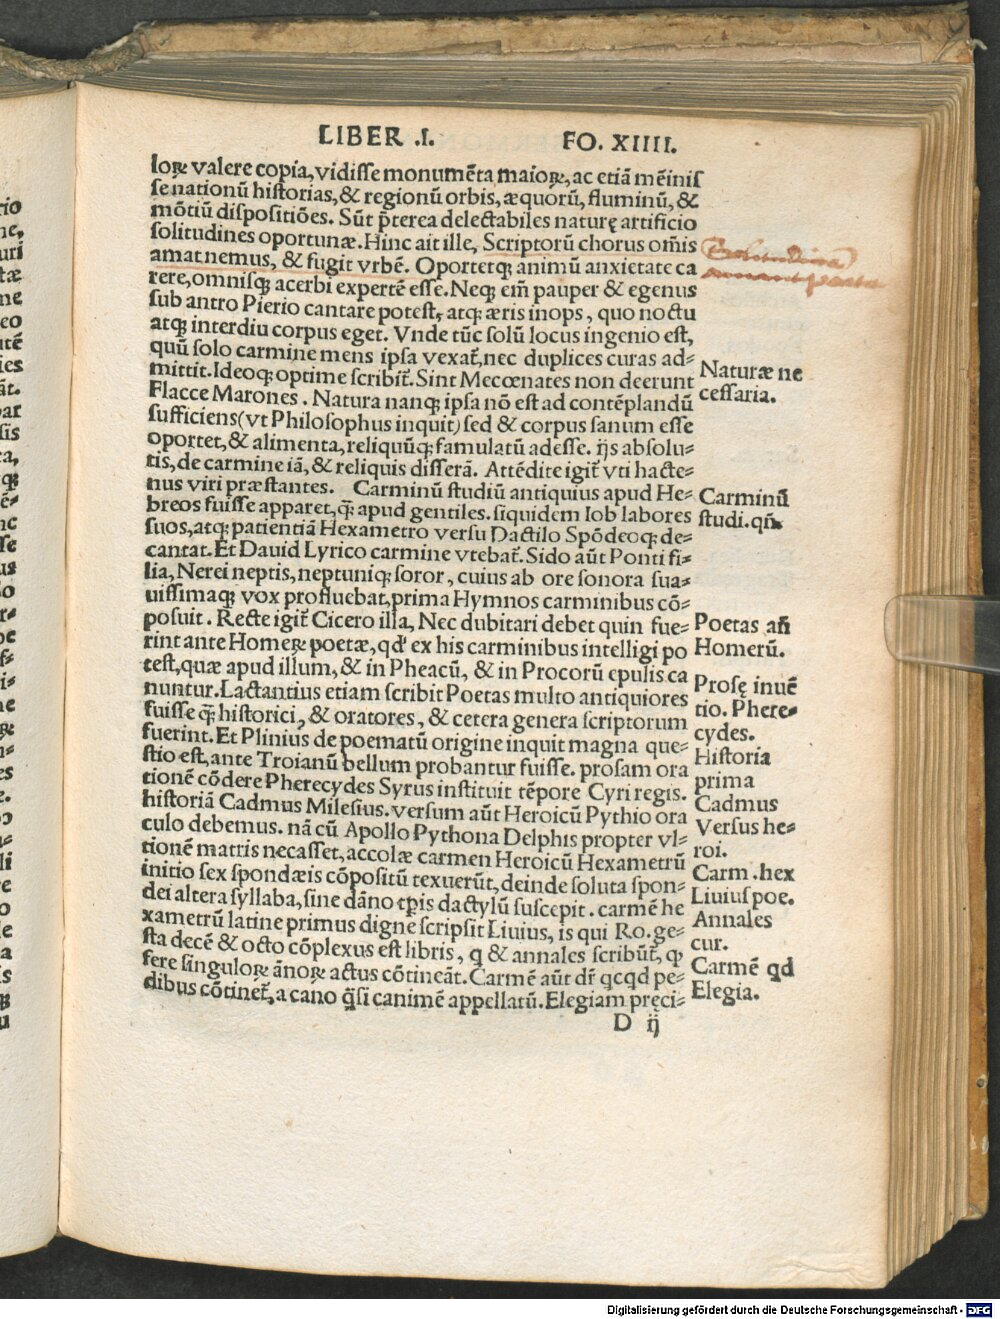 LIBER .I. FO. XIIII.
loꝝ valere copia, vidisse monumẽta maioꝝ, ac etiã mẽinis
se nationũ historias, & regionũ orbis, æquorũ, fluminũ, &
mõtiũ dispositiões. Sũt p̃terea delectabiles naturę artificio
solitudines oportunæ. Hinc ait ille, Scriptorũ chorus om̃is
amat nemus, & fugit vrbẽ. Oportetqꝫ animũ anxietate ca
rere, omnisqꝫ acerbi expertẽ esse. Neqꝫ em̃ pauper & egenus
sub antro Pierio cantare potest, atqꝫ æris inops, quo noctu
atqꝫ interdiu corpus eget. Vnde tũc solũ locus ingenio est,
quũ solo carmine mens ipsa vexat᷑, nec duplices curas ad⸗
mittit. Ideoqꝫ optime scribit᷑. Sint Mecœnates non deerunt
Flacce Marones. Natura nanqꝫ ipsa nõ est ad contẽplandũ
sufficiens (vt Philosophus inquit) sed & corpus sanum esse
oportet, & alimenta, reliquũqꝫ famulatũ adesse. ijs absolu⸗
tis, de carmine iã, & reliquis disserã. Attẽdite igit᷑ vti hacte⸗
nus viri præstantes. Carminũ studiũ antiquius apud He⸗
breos fuisse apparet, q̃ apud gentiles. siquidem Iob labores
suos, atqꝫ patientiã Hexametro versu Dactilo Spõdeoqꝫ de⸗
cantat. Et Dauid Lyrico carmine vtebat᷑. Sido aũt Ponti fi⸗
lia, Nerei neptis, neptuniqꝫ soror, cuius ab ore sonora sua⸗
uissimaqꝫ vox profluebat, prima Hymnos carminibus cõ⸗
posuit. Recte igit᷑ Cicero illa, Nec dubitari debet quin fue⸗
rint ante Homeꝝ poetæ, qd' ex his carminibus intelligi po
test, quæ apud illum, & in Pheacũ, & in Procorũ epulis ca
nuntur. Lactantius etiam scribit Poetas multo antiquiores
fuisse q̃ historici, & oratores, & cetera genera scriptorum
fuerint. Et Plinius de poematũ origine inquit magna que⸗
stio est, ante Troianũ bellum probantur fuisse. prosam ora
tionẽ cõdere Pherecydes Syrus instituit tẽpore Cyri regis.
historiã Cadmus Milesius. versum aũt Heroicũ Pythio ora
culo debemus. nã cũ Apollo Pythona Delphis propter vl⸗
tionẽ matris necasset, accolæ carmen Heroicũ Hexametrũ
initio sex spondæis cõpositũ texuerũt, deinde soluta spon⸗
dei altera syllaba, sine dãno tꝑis dactylũ suscepit. carmẽ he
xametrũ latine primus digne scripsit Liuius, is qui Ro. ge⸗
sta decẽ & octo cõplexus est libris, q & annales scribũt᷑, ꝙ
fere singuloꝝ ãnoꝝ actus cõtineãt. Carmẽ aũt dr̃ qcqd pe⸗
dibus cõtinet᷑, a cano q̃si canimẽ appellatũ. Elegiam pręci⸗
D ij
Naturæ ne
cessaria.
Carminũ
studi. qñ.
Poetas añ
Homerũ.
Prosę inuẽ
tio. Phere⸗
cydes.
Historia
prima
Cadmus
Versus he⸗
roi.
Carm .hex
Liuius poe.
Annales
cur.
Carmẽ qd
Elegia.
Digitalisierung gefördert durch die Deutsche Forschungsgemeinschaft - DFG